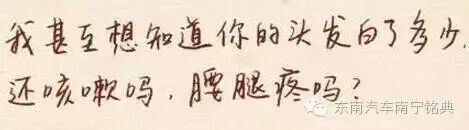 我甚至想知道你的头发白了多少,
还咳嗽吗，腰腿疼吗？
东南汽车南宁铭典